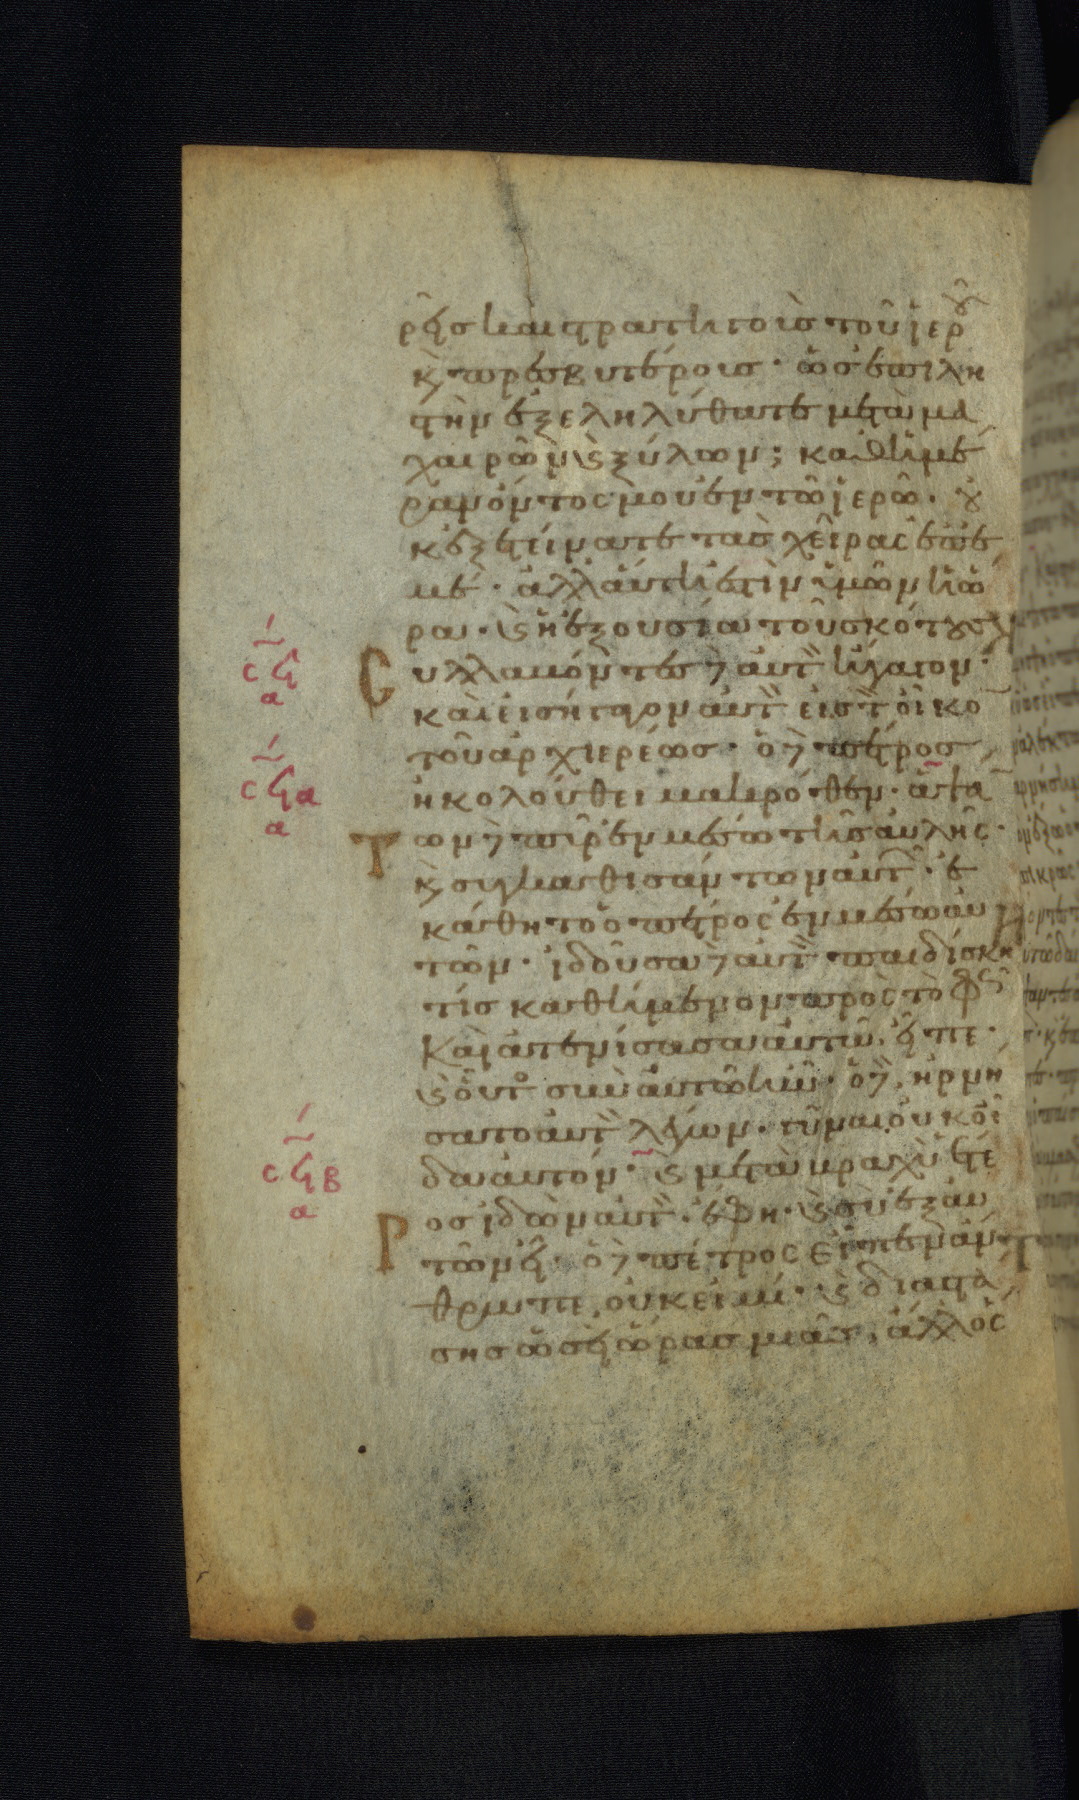 ρεῖς καὶ στρατηγοὺς τοῦ ἱερου
κ̀ πρεσβυτέροις· ὡς ἐπὶ λη
στὴν ἐξεληλύθατε μετὰ μα
χαιρῶν κ̀ ξύλων; καθημέ
ραν ὄντός μου ἐν τῶ ἱερῶ. οὐ
κ ἐξετείνατε τὰς χεῖρας ἐπ ἐ
μέ· ἀλλ αὕτη ἐστὶν ὑμῶν ἡ ὥ
ρα· κ̀ ἡ ἐξουσία τοῦ σκότους
Συλλαβόντες δὲ αὐτὸν ἤγαγον·
καὶ εἰσήγαγον αὐτὸν εἰς τὸν οἶκο
τοῦ ἀρχιερέως· ὁ δὲ πέτρος
ἠκολούθει μακρόθεν· ἁψά
τ ων δὲ πῦρ ἐν μέσω τῆς αὐλῆς·
κ̀ συγκαθισάντων αὐτῶν· ἐ
κάθητο ὁ πέτρος ἐν μέσω αὐ
τῶν· ἰδοῦσα δὲ αὐτὸν παιδίσκη
τὶς καθήμενον πρὸς τὸ φῶς
Καὶ ἀτενίσασα αὐτῶ. εἶπε·
κ̀ οὗτος σὺν αὐτῶ ἦν· ὁ δὲ ἠρνή
σατο αὐτὸν λέγων· γύναι οὐκ οἶ
δα αὐτόν· κ̀ μετὰ βραχὺ ἕτε
Ρ ος ἰδὼν αὐτὸν· ἔφη· κ̀ σὺ ἐξ αὐ
τῶν εἶ· ὁ δὲ πέτρος εἶπεν ἄν
θρωπε, οὐκ εἰμί· κ̀ διαστά
σης ὡσεὶ ὥρας μιᾶς, ἄλλος